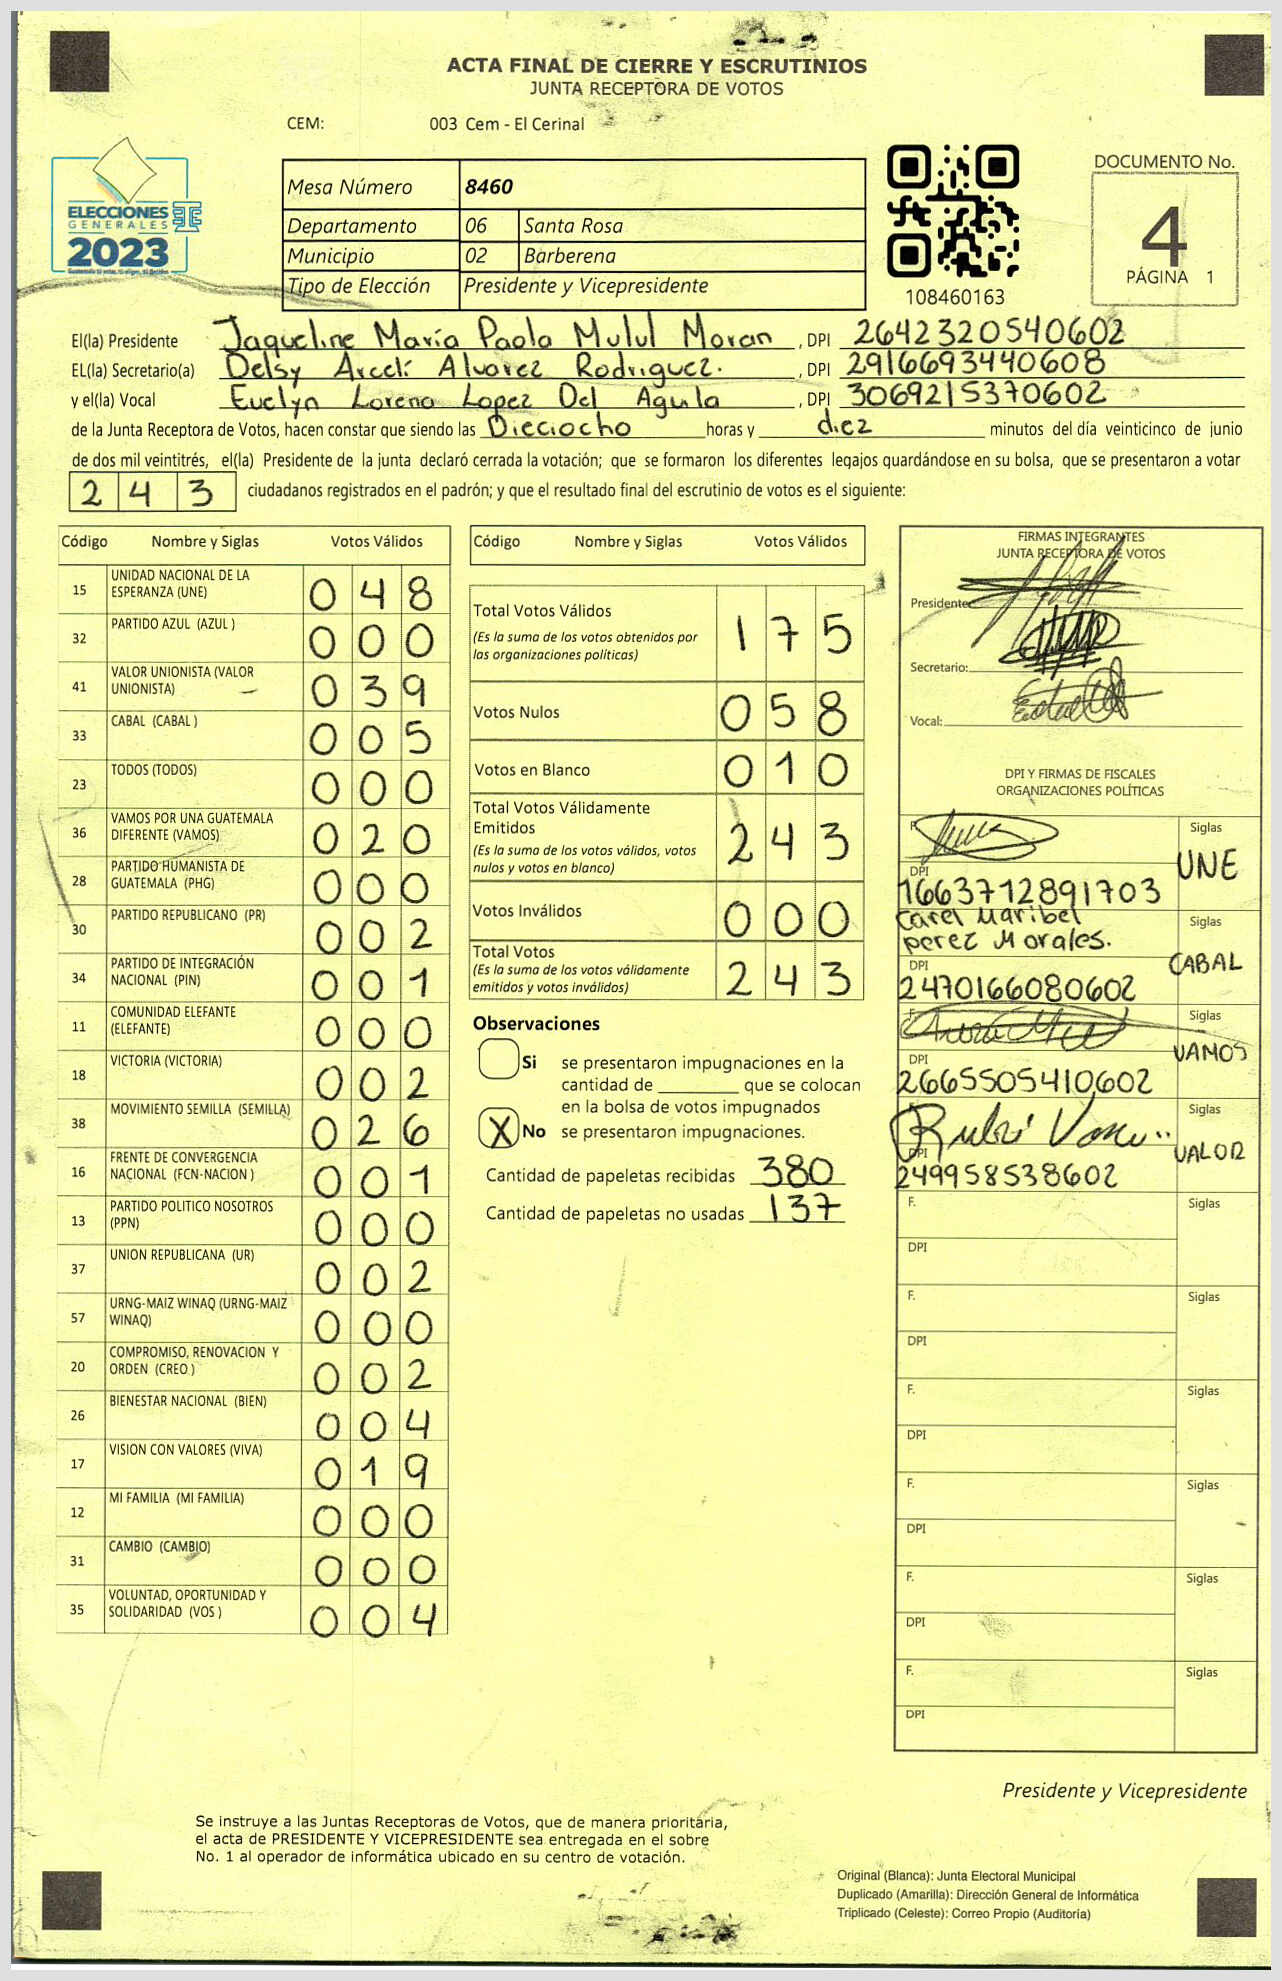 ACTA FINAL DE CIERRE Y ESCRUTINIOS
JUNTA RECEPTORA DE VOTOS
CEM: 003 Cem - El Cerinal
ELECCIONES
GENERALES
2023
Mesa Número 8460
Departamento 06 Santa Rosa
Municipio 02 Barberena
Tipo de Elección Presidente y Vicepresidente
108460163
DOCUMENTO No.
4
PÁGINA 1
El(la) Presidente Jaqueline María Paola Mulul Moran , DPI 2642320540602
EL(la) Secretario(a) Delsy Arceli Alvarez Rodriguez. , DPI 2916693440608
y el(la) Vocal Evelyn Lorena Lopez Del Aguila , DPI 3069215370602
de la Junta Receptora de Votos, hacen constar que siendo las Dieciocho horas y diez minutos del día veinticinco de junio
de dos mil veintitrés, el(la) Presidente de la junta declaró cerrada la votación; que se formaron los diferentes legajos guardándose en su bolsa, que se presentaron a votar
243 ciudadanos registrados en el padrón; y que el resultado final del escrutinio de votos es el siguiente:
Código Nombre y Siglas Votos Válidos
15 UNIDAD NACIONAL DE LA ESPERANZA (UNE) 048
32 PARTIDO AZUL (AZUL ) 000
41 VALOR UNIONISTA (VALOR UNIONISTA) 039
33 CABAL (CABAL ) 005
23 TODOS (TODOS) 000
36 VAMOS POR UNA GUATEMALA DIFERENTE (VAMOS) 020
28 PARTIDO HUMANISTA DE GUATEMALA (PHG) 000
30 PARTIDO REPUBLICANO (PR) 002
34 PARTIDO DE INTEGRACIÓN NACIONAL (PIN) 001
11 COMUNIDAD ELEFANTE (ELEFANTE) 000
18 VICTORIA (VICTORIA) 002
38 MOVIMIENTO SEMILLA (SEMILLA) 026
16 FRENTE DE CONVERGENCIA NACIONAL (FCN-NACION ) 001
13 PARTIDO POLITICO NOSOTROS (PPN) 000
37 UNION REPUBLICANA (UR) 002
57 URNG-MAIZ WINAQ (URNG-MAIZ WINAQ) 000
20 COMPROMISO, RENOVACION Y ORDEN (CREO ) 002
26 BIENESTAR NACIONAL (BIEN) 004
17 VISION CON VALORES (VIVA) 019
12 MI FAMILIA (MI FAMILIA) 000
31 CAMBIO (CAMBIO) 000
35 VOLUNTAD, OPORTUNIDAD Y SOLIDARIDAD (VOS ) 004
Código Nombre y Siglas Votos Válidos
Total Votos Válidos 175
(Es la suma de los votos obtenidos por
las organizaciones políticas)
Votos Nulos 058
Votos en Blanco 010
Total Votos Válidamente
Emitidos 243
(Es la suma de los votos válidos, votos
nulos y votos en blanco)
Votos Inválidos 000
Total Votos 243
(Es la suma de los votos válidamente
emitidos y votos inválidos)
Observaciones
Si se presentaron impugnaciones en la
cantidad de ________ que se colocan
en la bolsa de votos impugnados
X No se presentaron impugnaciones.
Cantidad de papeletas recibidas 380
Cantidad de papeletas no usadas 137
FIRMAS INTEGRANTES
JUNTA RECEPTORA DE VOTOS
Presidente:
Secretario:
Vocal:
DPI Y FIRMAS DE FISCALES
ORGANIZACIONES POLÍTICAS
F. Siglas
UNE
DPI
1663712891703
Carel Maribel Siglas
perez Morales.
CABAL
DPI
2470166080602
F. Siglas
VAMOS
DPI
2665505410602
Siglas
VALOR
DPI
249958538602
F. Siglas
DPI
F. Siglas
DPI
F. Siglas
DPI
F. Siglas
DPI
F. Siglas
DPI
F. Siglas
DPI
Presidente y Vicepresidente
Se instruye a las Juntas Receptoras de Votos, que de manera prioritaria,
el acta de PRESIDENTE Y VICEPRESIDENTE sea entregada en el sobre
No. 1 al operador de informática ubicado en su centro de votación.
Original (Blanca): Junta Electoral Municipal
Duplicado (Amarilla): Dirección General de Informática
Triplicado (Celeste): Correo Propio (Auditoría)